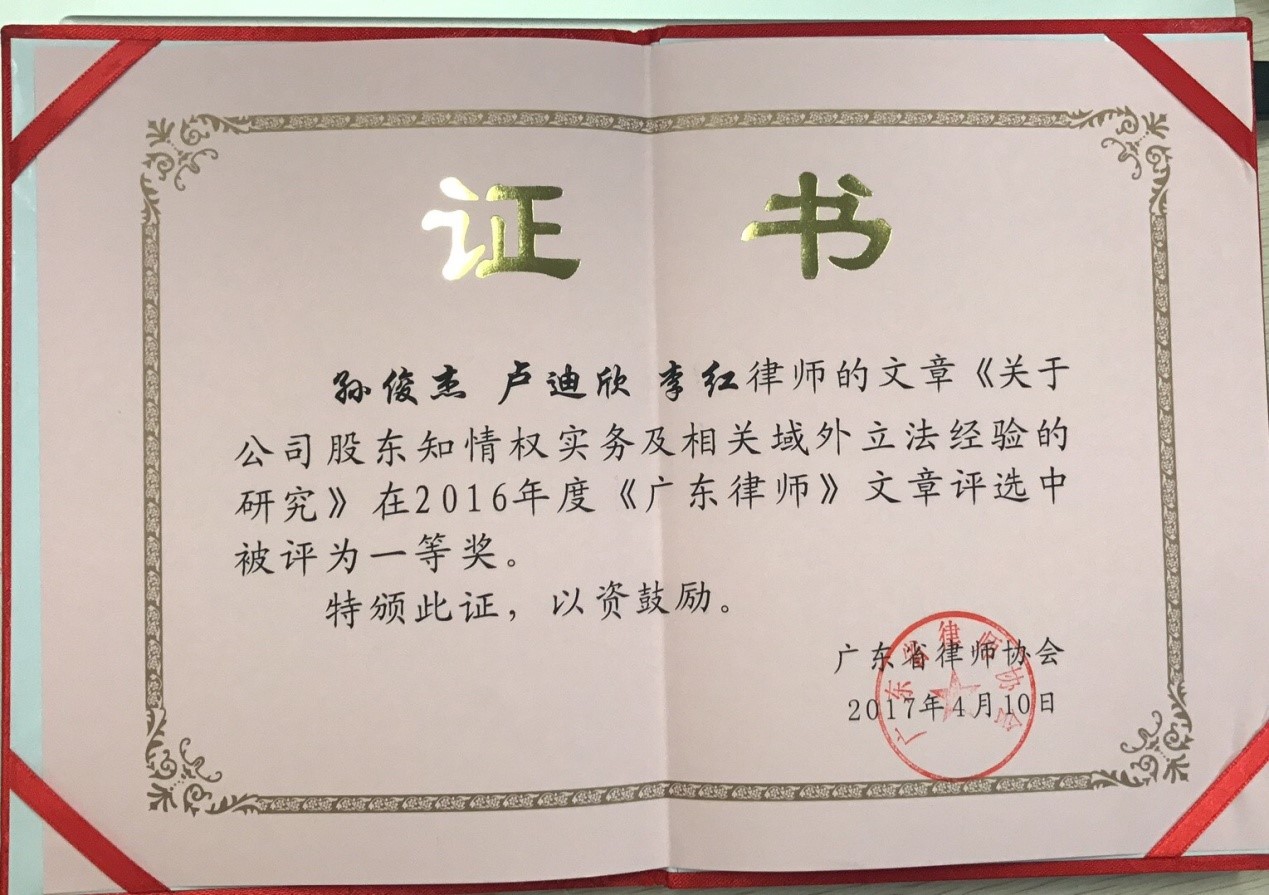 证 书
孙俊杰 卢迪欣 李红律师的文章《关于
公司股东知情权实务及相关域外立法经验的
研究》在2016年度《广东律师》文章评选中
被评为一等奖。
特颁此证，以资鼓励。
广东省律师协会
2017年4月10日
广东省律师协会